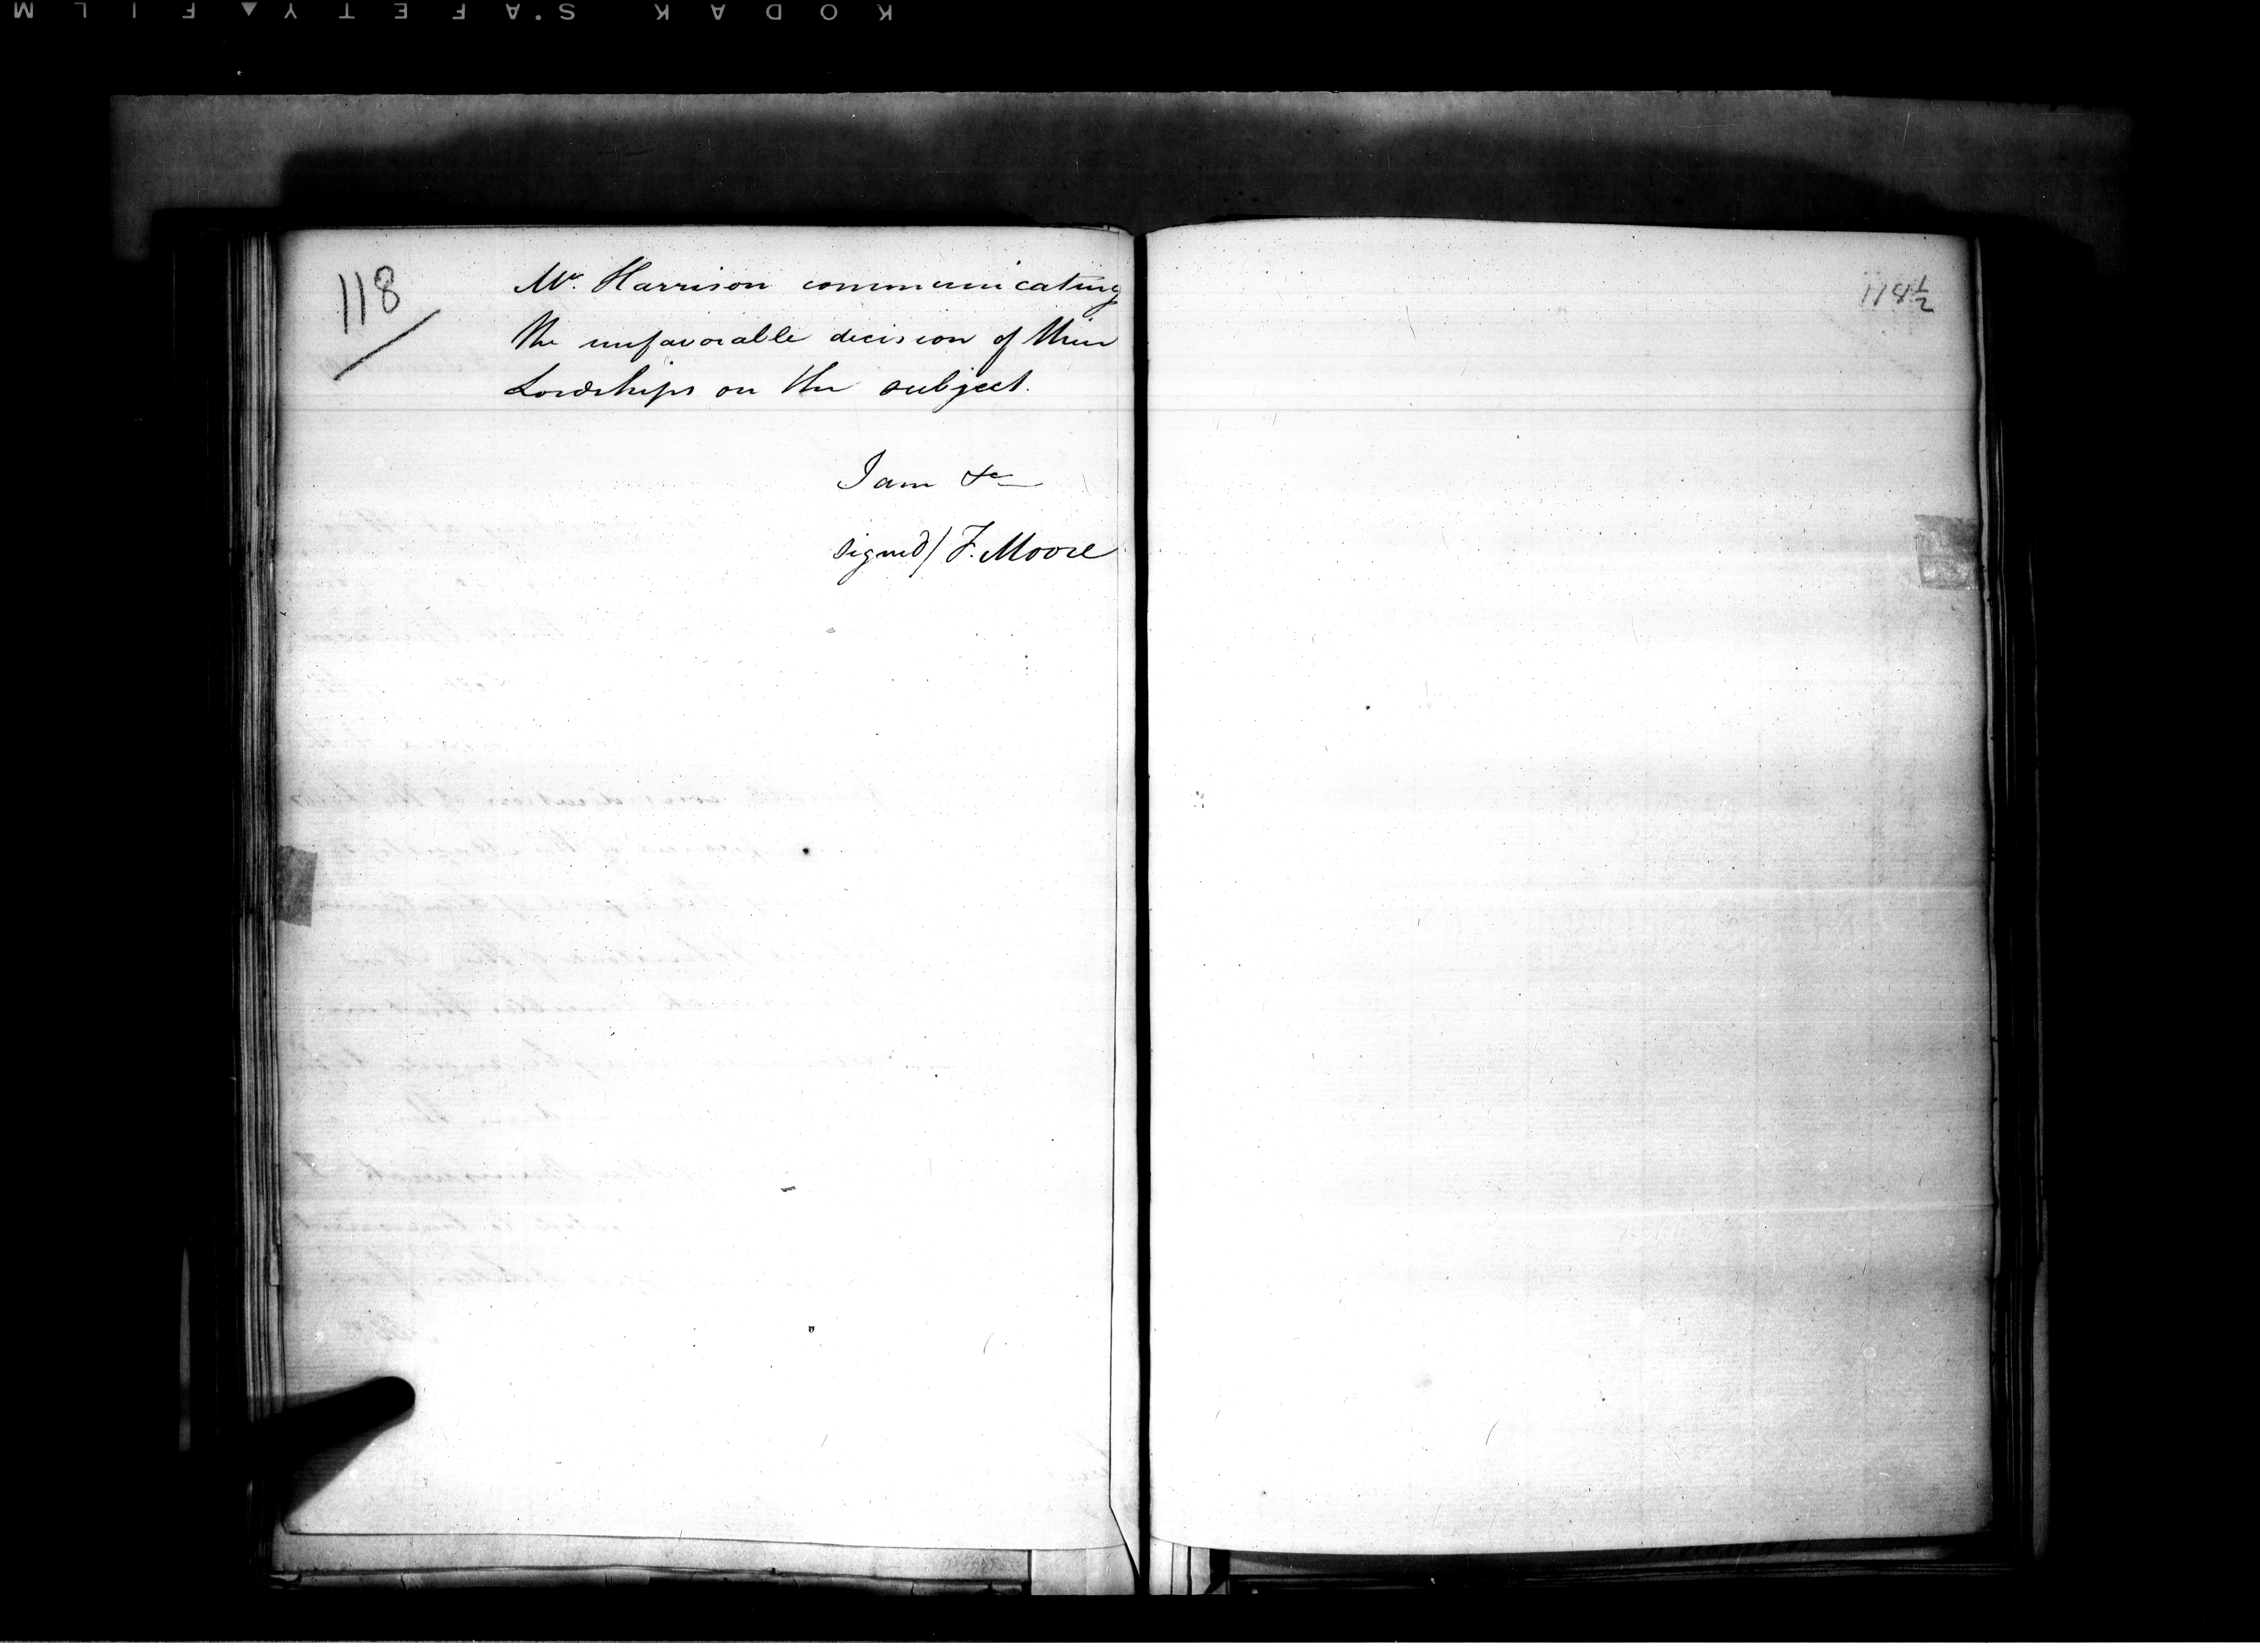 KODAK S'AFETY FILM
118
Mr. Harrison communicating
the unfavorable decision of their
Lordships on the subject.
I am &c
signed/ F. Moore
118½